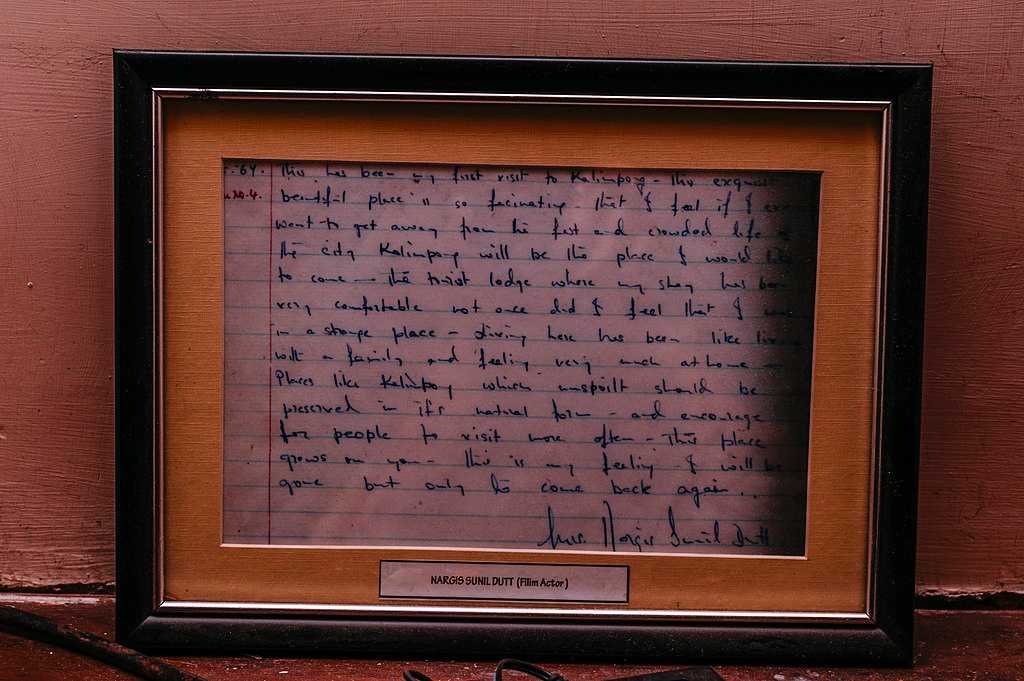 .64. This has been my first visit to Kalimpong - this
No.4. beautiful place is so facinating that I feel if I
want to get away from the fast and crowded life
the city Kalimpong will be the place I would
to come - the tourist lodge where my stay has been
very comfortable not once did I feel that I
in a strange place - living here has been like
with a family and feeling very much at home -
Places like Kalimpong which unspoilt should be
preserved in it's natural form - and encourage
for people to visit more often - This place
grows on you - this is my feeling - I will be
gone but only to come back again...
Mrs. Nargis Sunil Dutt
NARGIS SUNIL DUTT (Filim Actor)